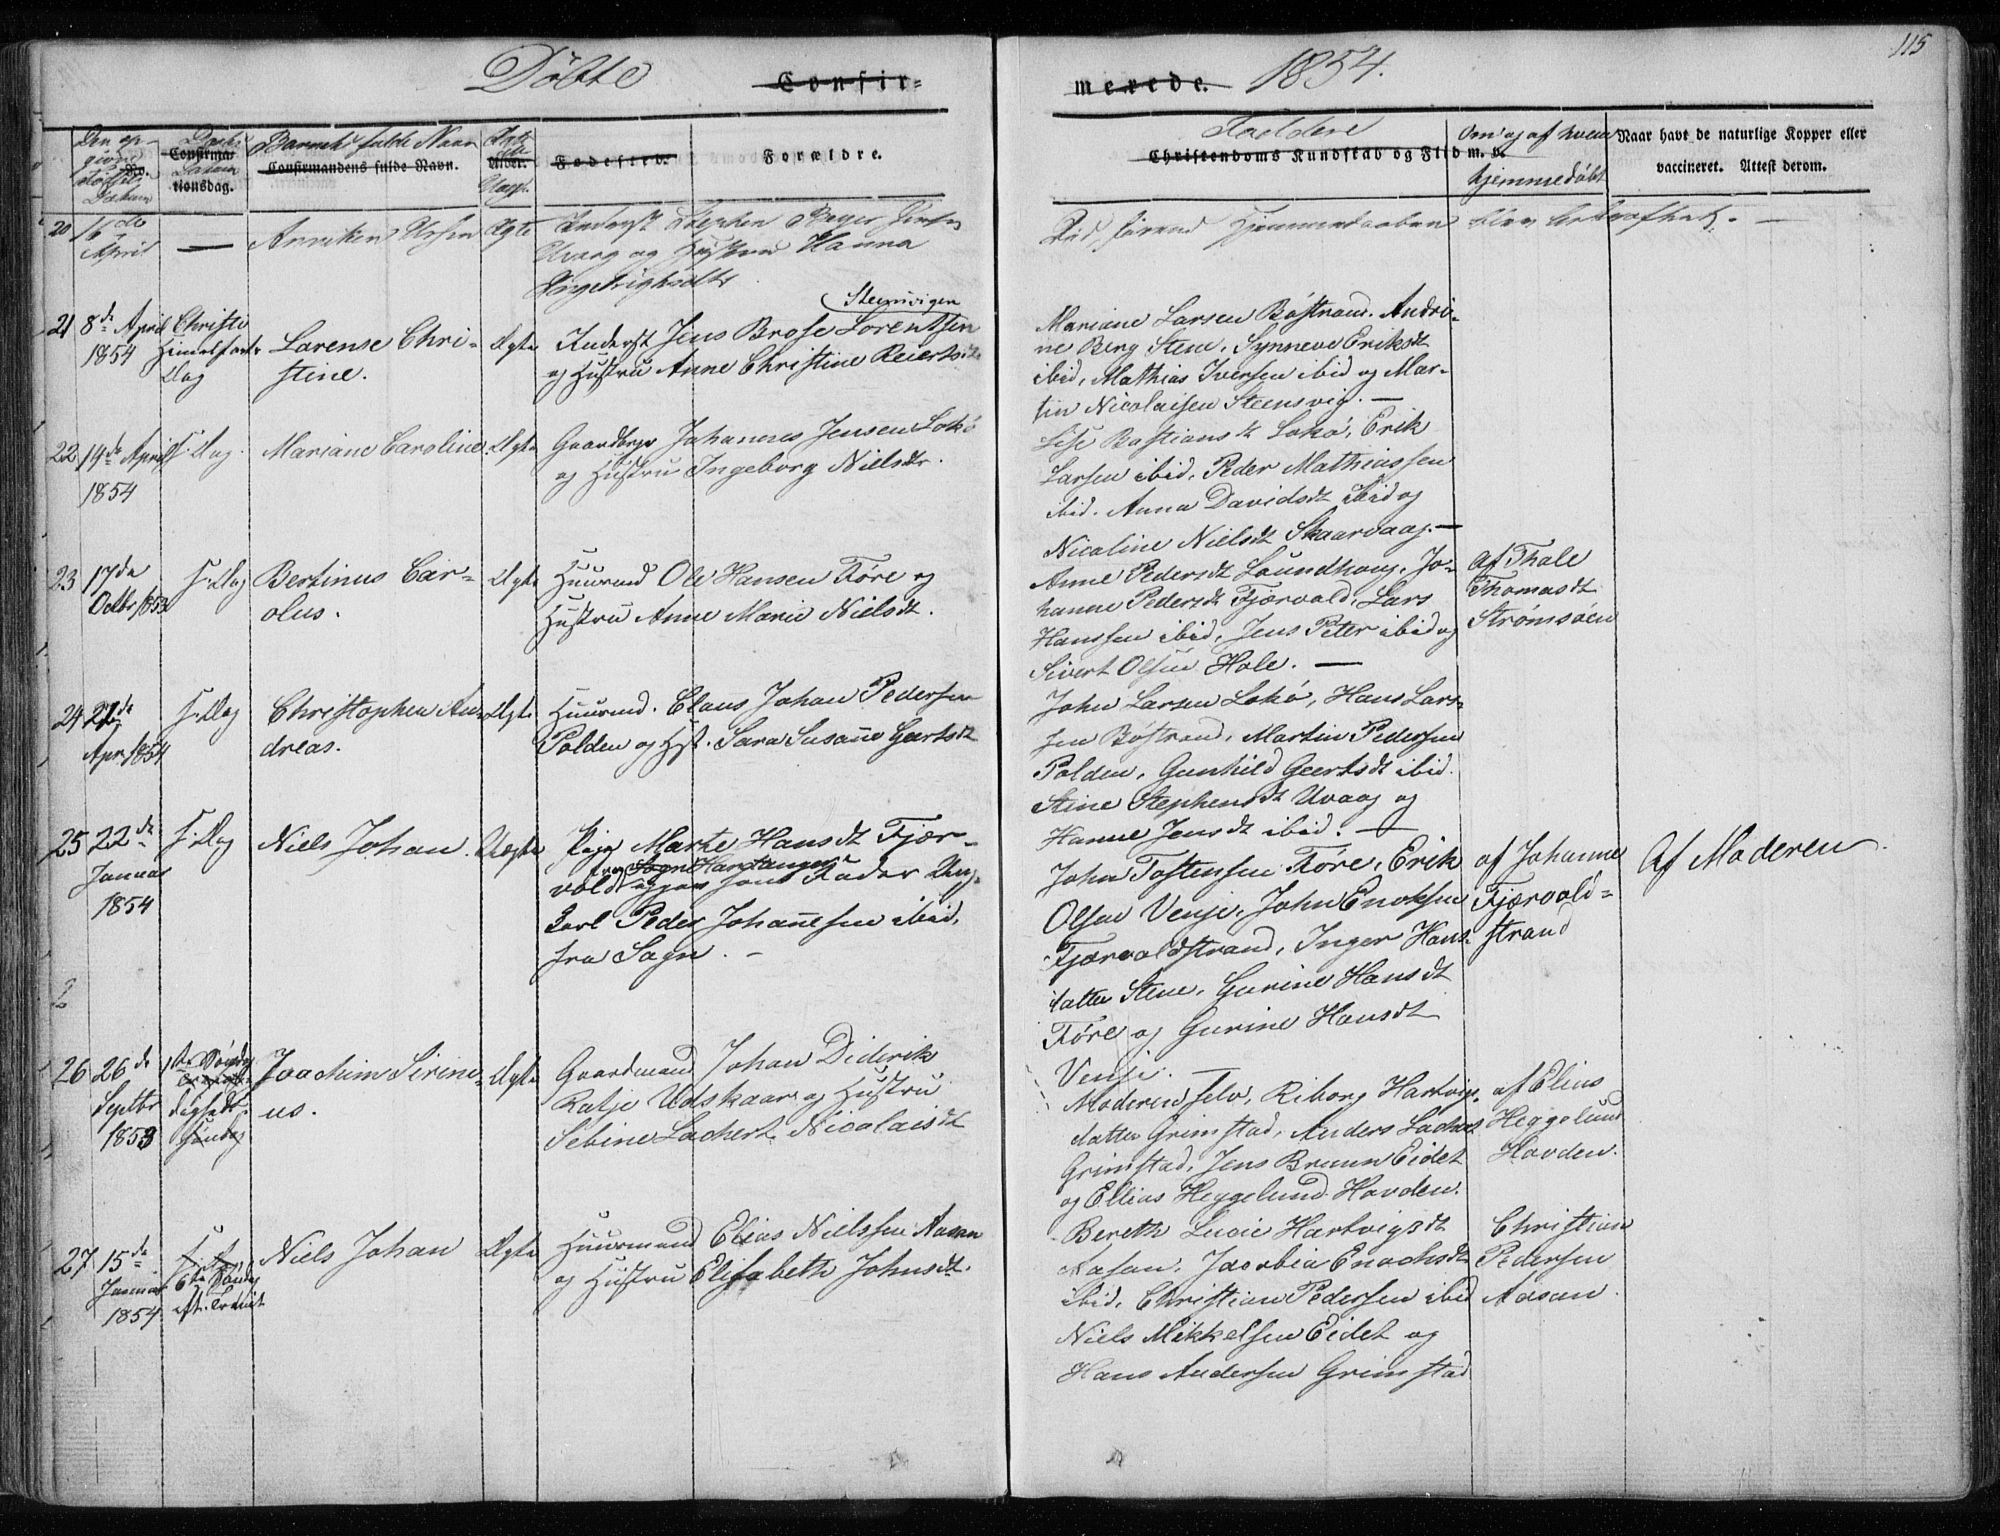 Döbte Confir-
merede. 1854.
115
Den op-
givne
Födsels
Datum
No.
Daabs
Datum
Confirma-
tionsdag.
Barnets fulde Navn
Confirmandens fulde Navn.
Ægte
eller
Uægt.
Alder.
Fødested.
Forældre.
Faddere
Christendoms Kundskab og Flid m. v.
Om og af hvem
hjemmedöbt
Naar havt de naturlige Kopper eller
vaccineret. Attest derom.
20 16de
April
—
Anniken
Ægte
Stephen Beyer
Uvaag og Hustru Hanna
Hjemmedaaben blev bekræftet. —
21 8de April
1854
Christi
Himmelfarts
Dag
Larense Chri-
stine.
Ægte
Steensvigen
Inderst Jens Brose Lorentsen
og Hustru Anne Christine Reiertsdt
Mariane Larsen Böstrand. Andri-
ne Berg Stene, Synneve Eriksdt
ibid, Mathias Iversen ibid og Mar-
tin Nicolaisen Steensvig. —
22 19de April
1854
S. Dag.
Mariane Caroline.
Ægte
Gaardbrgr Johannes Jensen Lokö
og Hustru Ingeborg Nielsdt.
Lise Bastiansdt Lokö, Erik
Larsen ibid, Peder Mathiassen
ibid. Anna Davidsdt ibid og
Nicoline Nielsdt Skaarvaag. —
23 17de
Octbr 1853
S. Dag
Bertinus Car-
olus.
Ægte
Huusmd Ole Hansen Före og
Hustru Anne Marie Nielsdt.
Anne Pedersdt Laundhoug, Jo-
hanne Pedersdt Fjærvold, Lars
Hanssen ibid, Jens Peter ibid og
Sivert Olsen Hole. —
af Thale
Thomasdt
Strømsøen
24 21de
Apr 1854
S. Dag
Christophen An-
dreas.
Ægte
Huusmd. Claus Johan Pedersen
Polden og Hst. Sara Susane Geertsdt
John Larsen Lokö, Hans Lars-
sen Böstrand, Martin Pedersen
Polden, Gunhild Geertsdt ibid.
Stine Stephensdt Uvaag og
Hanne Jensdt ibid. —
25 22de
Januar
1854
S. Dag
Niels Johan.
Uægte
Pige Marte Hansdt Fjær-
vold Fader Ung-
karl Peder Johanesen ibid,
fra Sogn. —
John Tostensen Före, Erik
Olsen Venje, John Enoksen
Fjærvoldstrand, Inger Hans-
datter Stene, Gurine Hansdt
Före og Gurine Hansdt
Venje. —
af Johanne
Fjærvold-
strand
Af Moderen.
26 26de
Septbr
1853
1ste Söndag
Joachim Sirin-
us.
Ægte
Gaardmand Johan Diderik
Ratje Udskaar og Hustru
Sebine Lachert Nicolaisdt
Moderen selv, Riborg Hartvigs-
datter Grimstad, Anders Lachert
Grimstad, Jens Bruun Eidet
og Ellias Heggelund Hovden.
af Elias
Heggelund
Hovden.
27 15de
Januar
1854.
6te Söndag
eft. Trinit
Niels Johan
Ægte
Huusmand Elias Nielssen Aasan
og Hustru Elisabeth Johnsdt.
Bereth Lucie Hartvigsdt
Aasan, Jacobia Enochsdt
ibid, Christian Pedersen ibid
Niels Mikkelsen Eidet og
Hans Andersen Grimstad
Christian
Pedersen
Aasan.